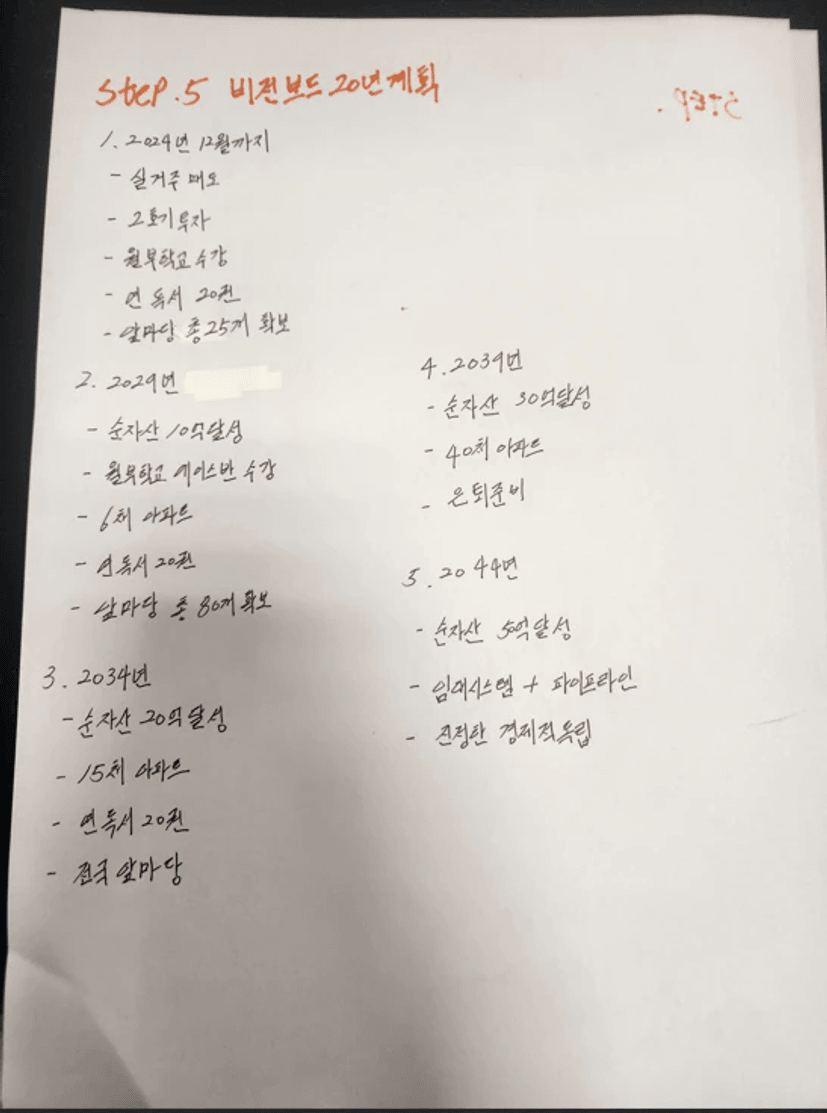 Step.5 비전보드 20년계획
STEP.
1. 2024년 12월까지
- 실거주 매도
- 2호기 투자
- 월부학교 수강
- 연 독서 20권
- 앞마당 총 25개 확보
2. 2029년
- 순자산 10억달성
- 월부학교 에이스반 수강
- 6채 아파트
- 연 독서 20권
- 앞마당 총 80개 확보
3. 2034년
- 순자산 20억달성
- 15채 아파트
- 연 독서 20권
- 전국 앞마당
4. 2039년
- 순자산 30억달성
- 40채 아파트
- 은퇴준비
5. 2044년
- 순자산 50억달성
- 임대시스템 + 파이프라인
- 진정한 경제적독립